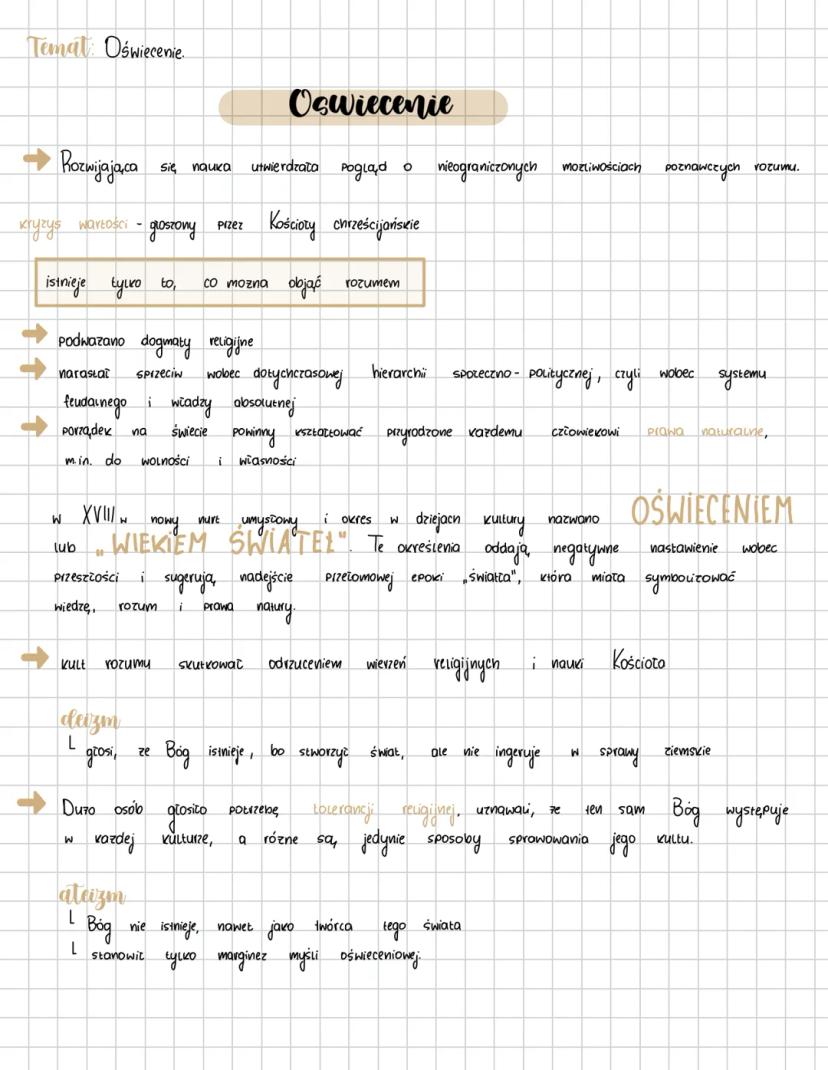 Temat: Oświecenie.
Oświecenie
Rozwijająca się nauka utwierdzała pogląd o nieograniczonych możliwościach poznawczych rozumu.
kryzys wartości - głoszony przez Kościoły chrześcijańskie
istnieje tylko to, co można objąć rozumem
podważano dogmaty religijne
narastał sprzeciw wobec dotychczasowej hierarchii społeczno - politycznej, czyli wobec systemu
feudalnego i władzy absolutnej
porządek na świecie powinny kształtować przyrodzone każdemu człowiekowi prawa naturalne,
m.in. do wolności i własności
w XVIII w nowy nurt umysłowy i okres w dziejach kultury nazwano OŚWIECENIEM
lub „WIEKIEM ŚWIATEŁ". Te określenia oddają, negatywne nastawienie wobec
przeszłości i sugerują, nadejście przełomowej epoki „światła", która miała symbolizować
wiedzę, rozum i prawa natury.
kult rozumu skutkował odrzuceniem wierzeń religijnych i nauki Kościoła
deizm
głosi, że Bóg istnieje, bo stworzył świat, ale nie ingeruje w sprawy ziemskie
Dużo osób głosiło potrzebę tolerancji religijnej, uznawali, że ten sam Bóg występuje
w każdej kulturze, a różne są, jedynie sposoby sprawowania jego kultu.
ateizm
Bóg nie istnieje, nawet jako twórca tego świata
stanowił tylko marginez myśli oświeceniowej.